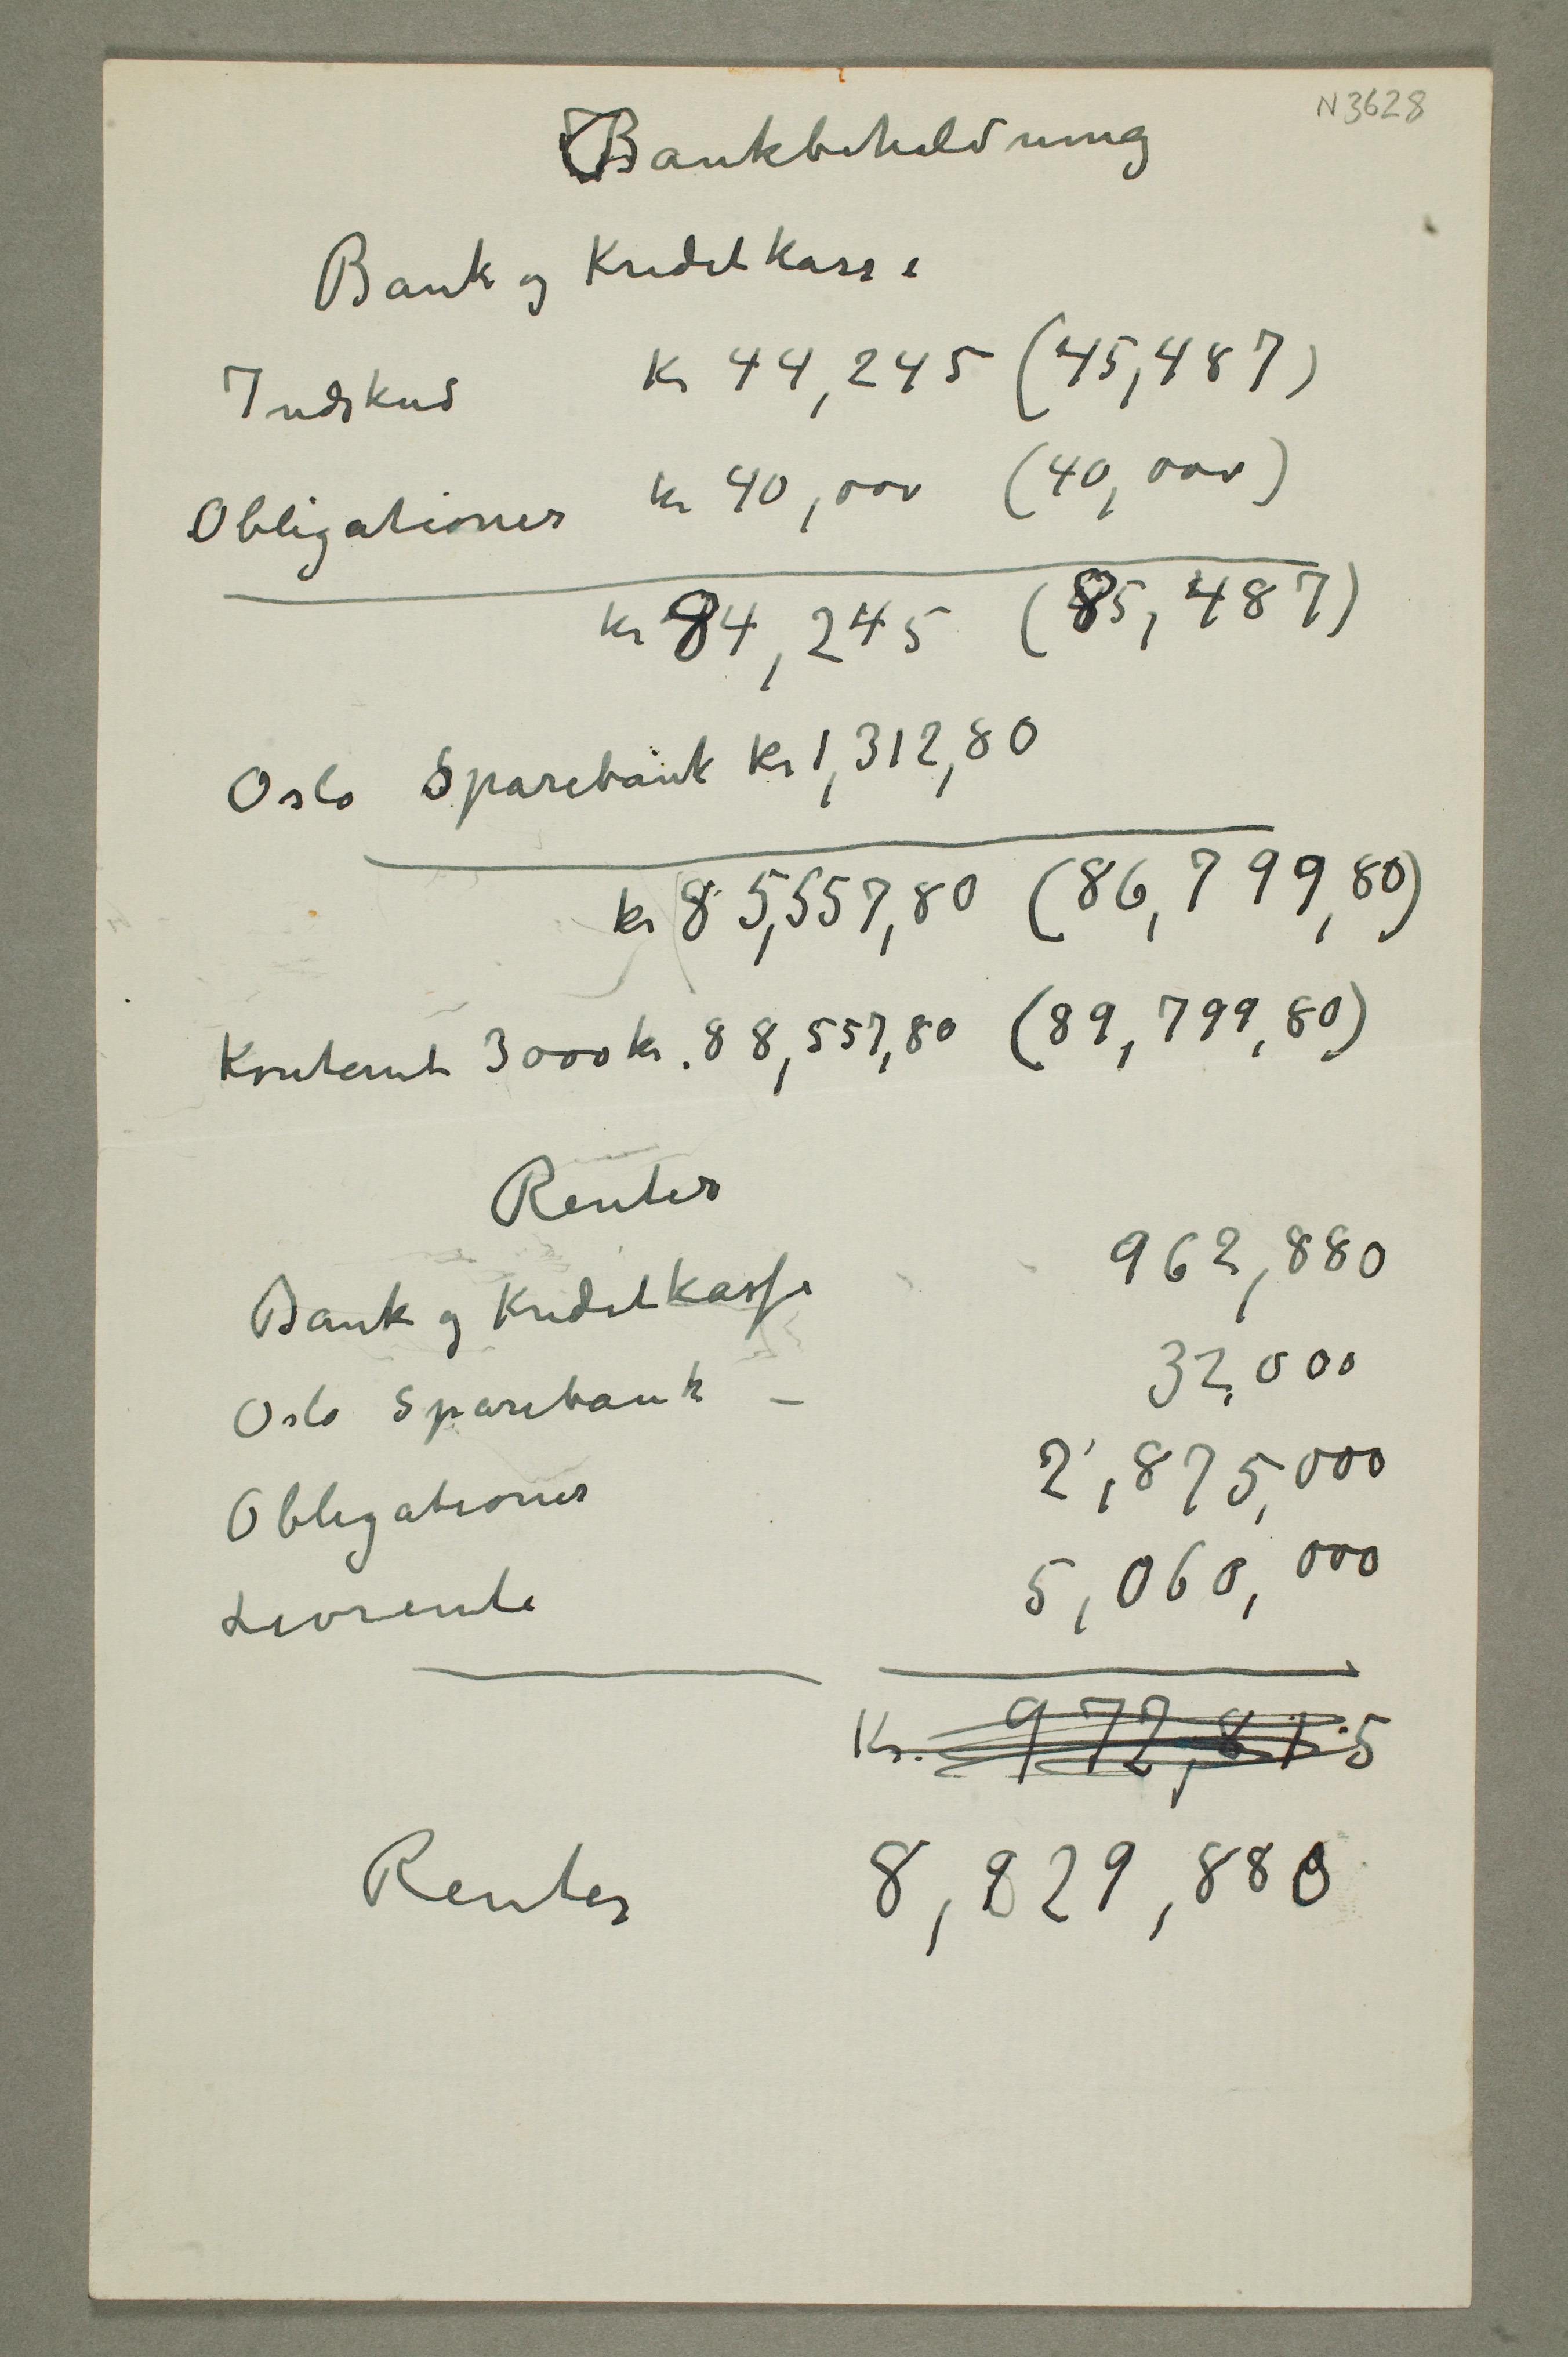 N3628
Bankbeholdning
Bank og Kreditkasse
Indskud Kr 44,245 (45,487)
Obligationer kr 40,000 (40,000)
kr 84,245 (85,487)
Oslo Sparebank Kr 1,312,80
kr 85,557,80 (86,799,80)
Kontant 3000 kr. 88,557,80 (89,799,80)
Renter
Bank og Kreditkasse 962,880
Oslo Sparebank – 32,000
Obligationer 2,875,000
Livrente 5,060,000
Kr. 972,815
Renter 8,929,880